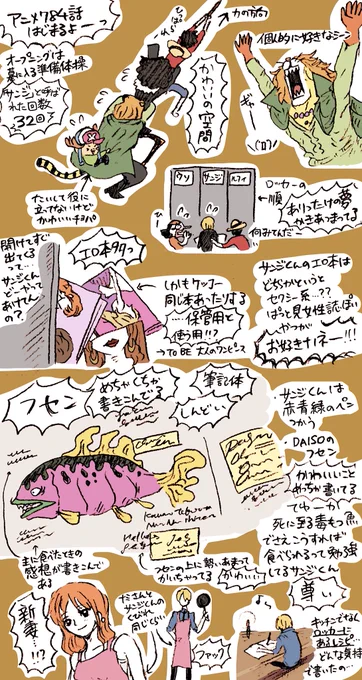 アニメ784話
はじまるよーっ
オープニングは
墓に入る準備体操
「サンジ」と呼ば
れた回数
32回
力の方向
かわいいの
空間
個人的に好きなシーン
たいして役に
立てないけど
かわいいチョパ
ロッカーの
順
ウソ
サンジ
ルフィ
ありったけの夢
かきあつまってる
何みてんだ
開けてすぐ
出てくる
って…
サンジくん
どーやって
あけてんの?
エロ本タワっ
同じ本あったりする
保管用と
使用用!?
→TO BE 大人のワンピース
サンジくんのエロ本は
どちらかというと
セクシー系…??
ぱっと見女性誌っぽい
やつが
お好き
フセン
めちゃくちゃ
書きこんでる
筆記体
しんどい
サンジくんは
赤青緑のペン
つかう
DAISOの
フセン
かわいいこと
めっちゃ書いてる
死に至る毒もつ魚
でさえこうすれば
食べられるって勉強
してるサンジくん
主に食べたときの
感想が書きこんで
ある
フセンの上に
かいちゃってる
かわいい
尊い
新妻!!?
サンジくんの
くびれ
同じくらい
ファック
キッチンでなく
ロッカーに
あるレシピ…
どんな気持
で書いたの…